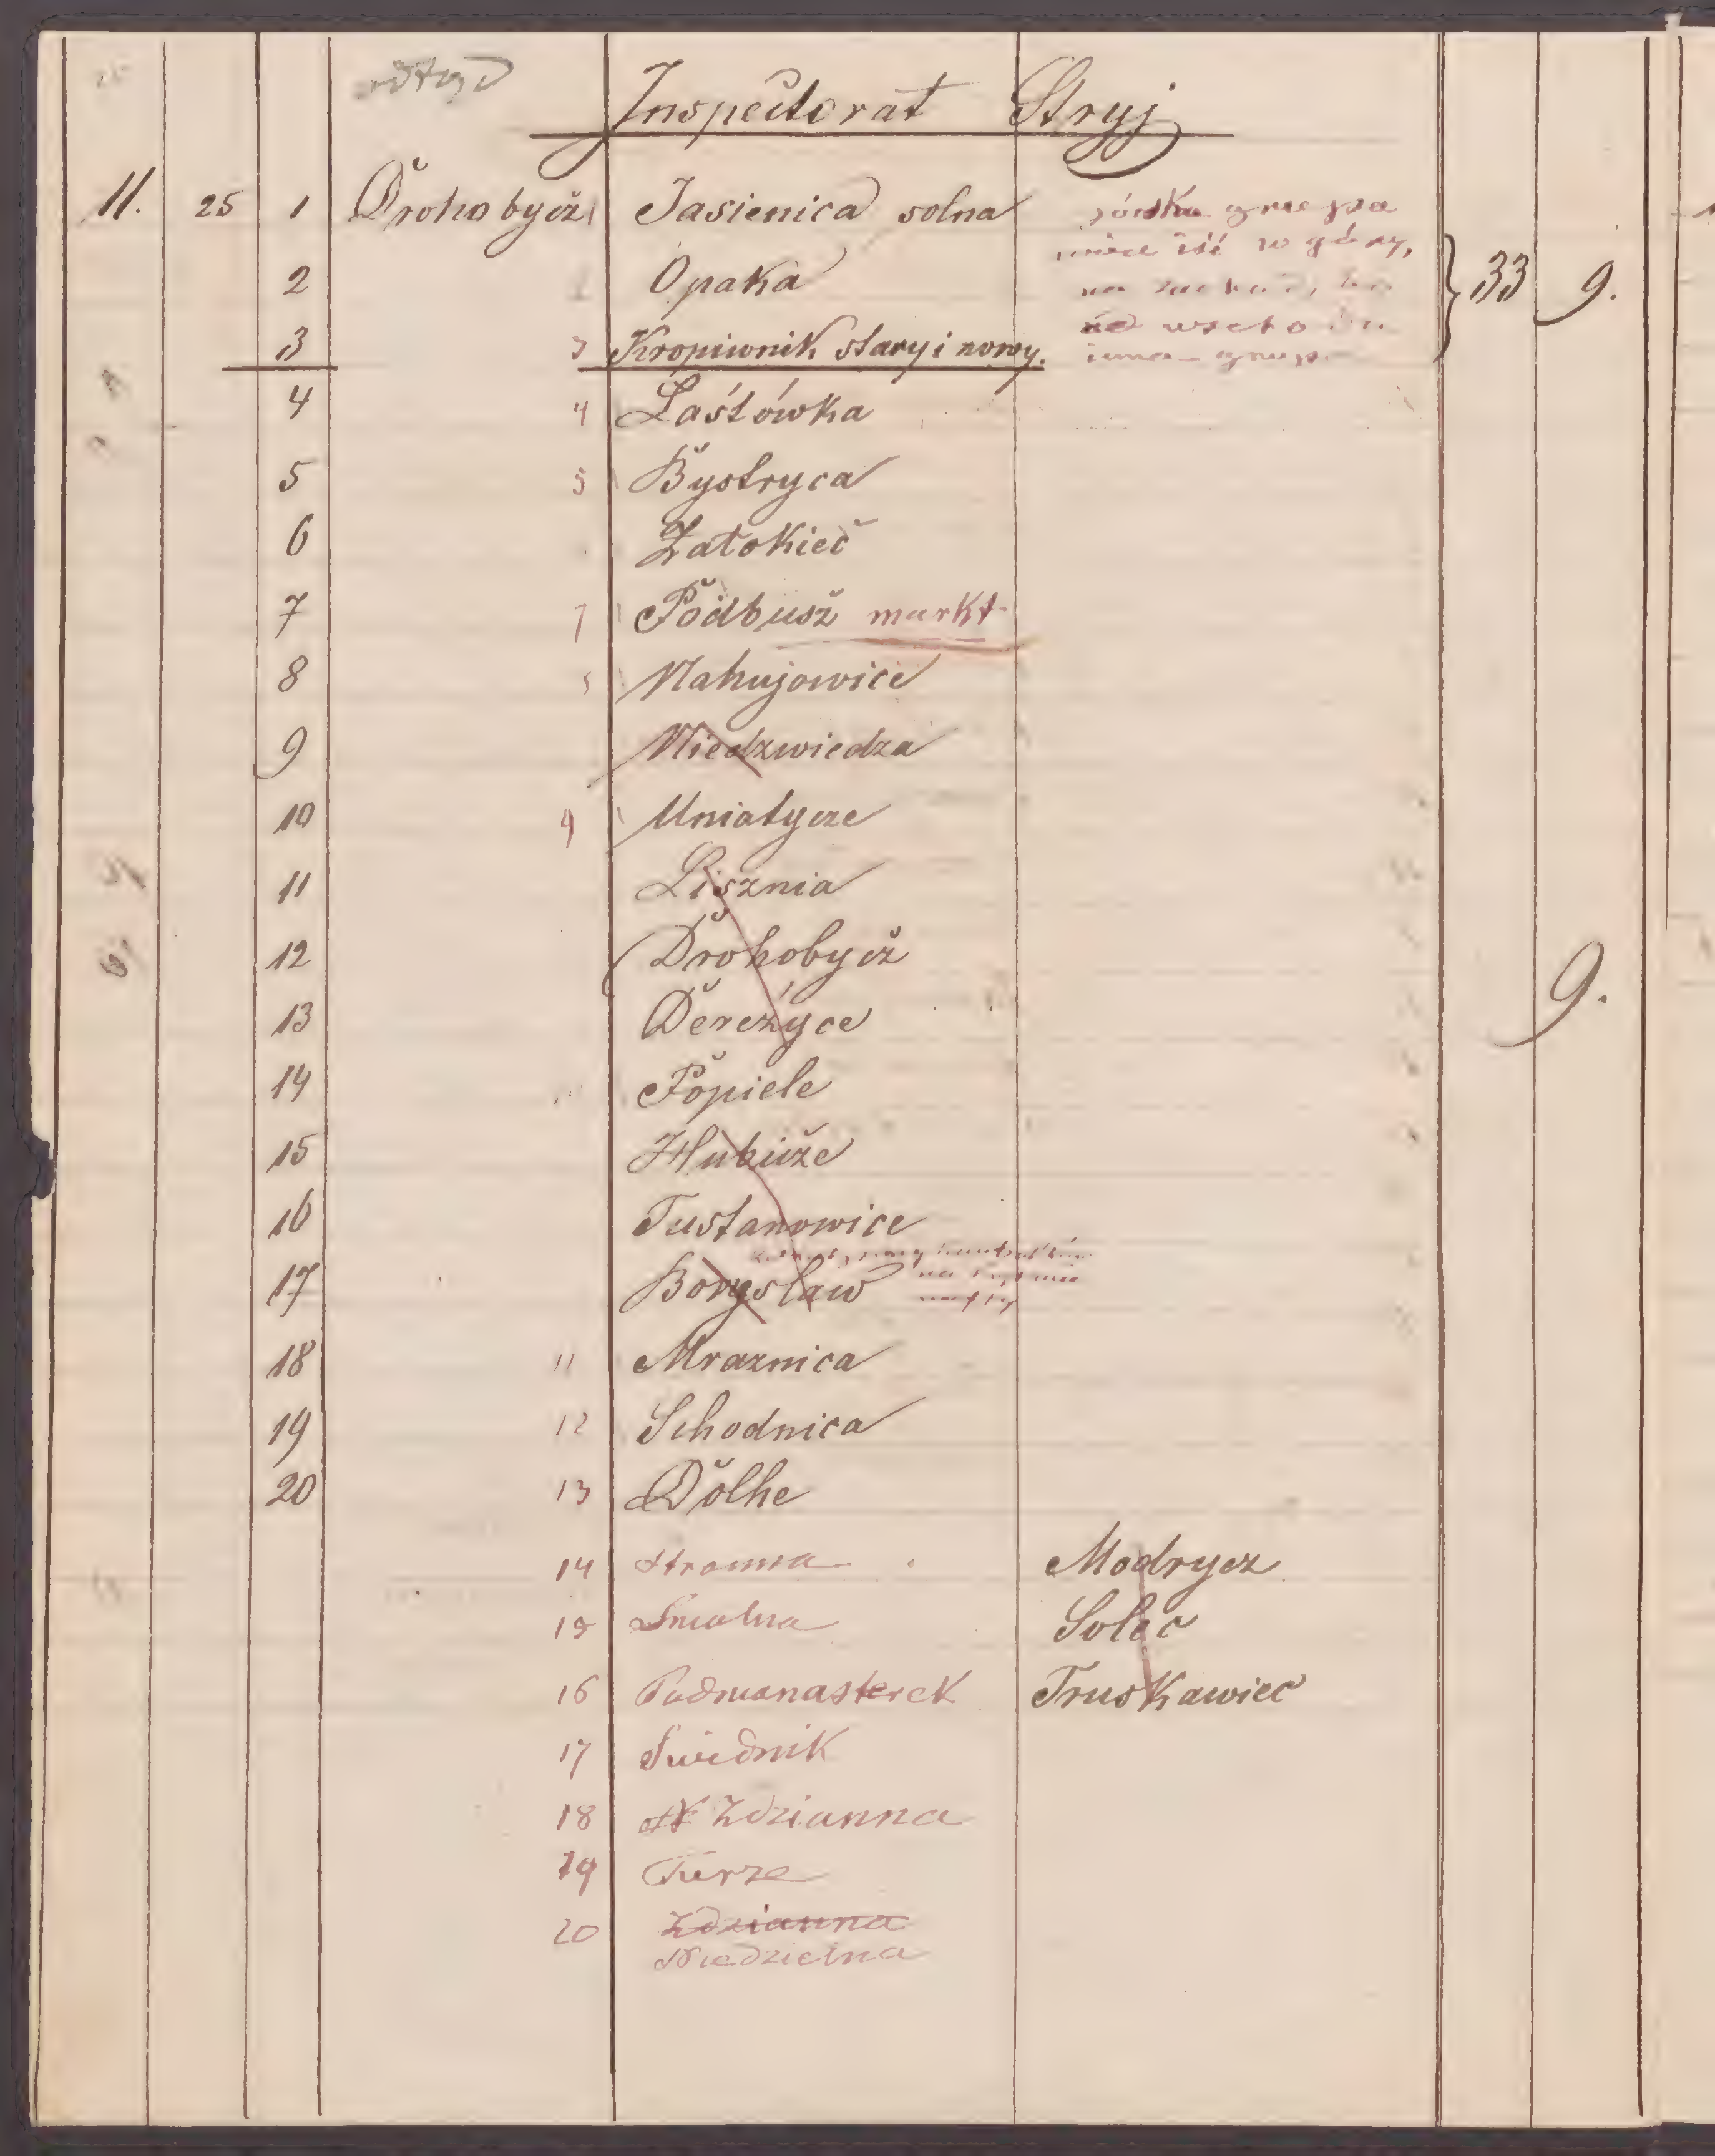 Inspectorat Stryj
11. 25 1 Drohobycz 1 Jasienica solna
2 Opaka
3 3 Kropiwnik stary i nowy.
33 9.
4 4 Łastówka
5 5 Bystryca
6 Załokieć
7 7 Podbusz markt
8 Nahujowice
9 Niedzwiedza
10 9 Uniatycze
11 Lisznia
12 Drohobycz
13 Dereżyce
9.
14 Popiele
15 Hubicze
16 Tustanowice
17 Borysław
18 11 Mraznica
19 12 Schodnica
20 13 Dolhe
14 Stronna Modrycz
15 Smolna Solec
16 Podmonasterek Truskawiec
17 Świdnik
18 Zdzianna
19 Turze
20 Zdzianna
Niedzielna